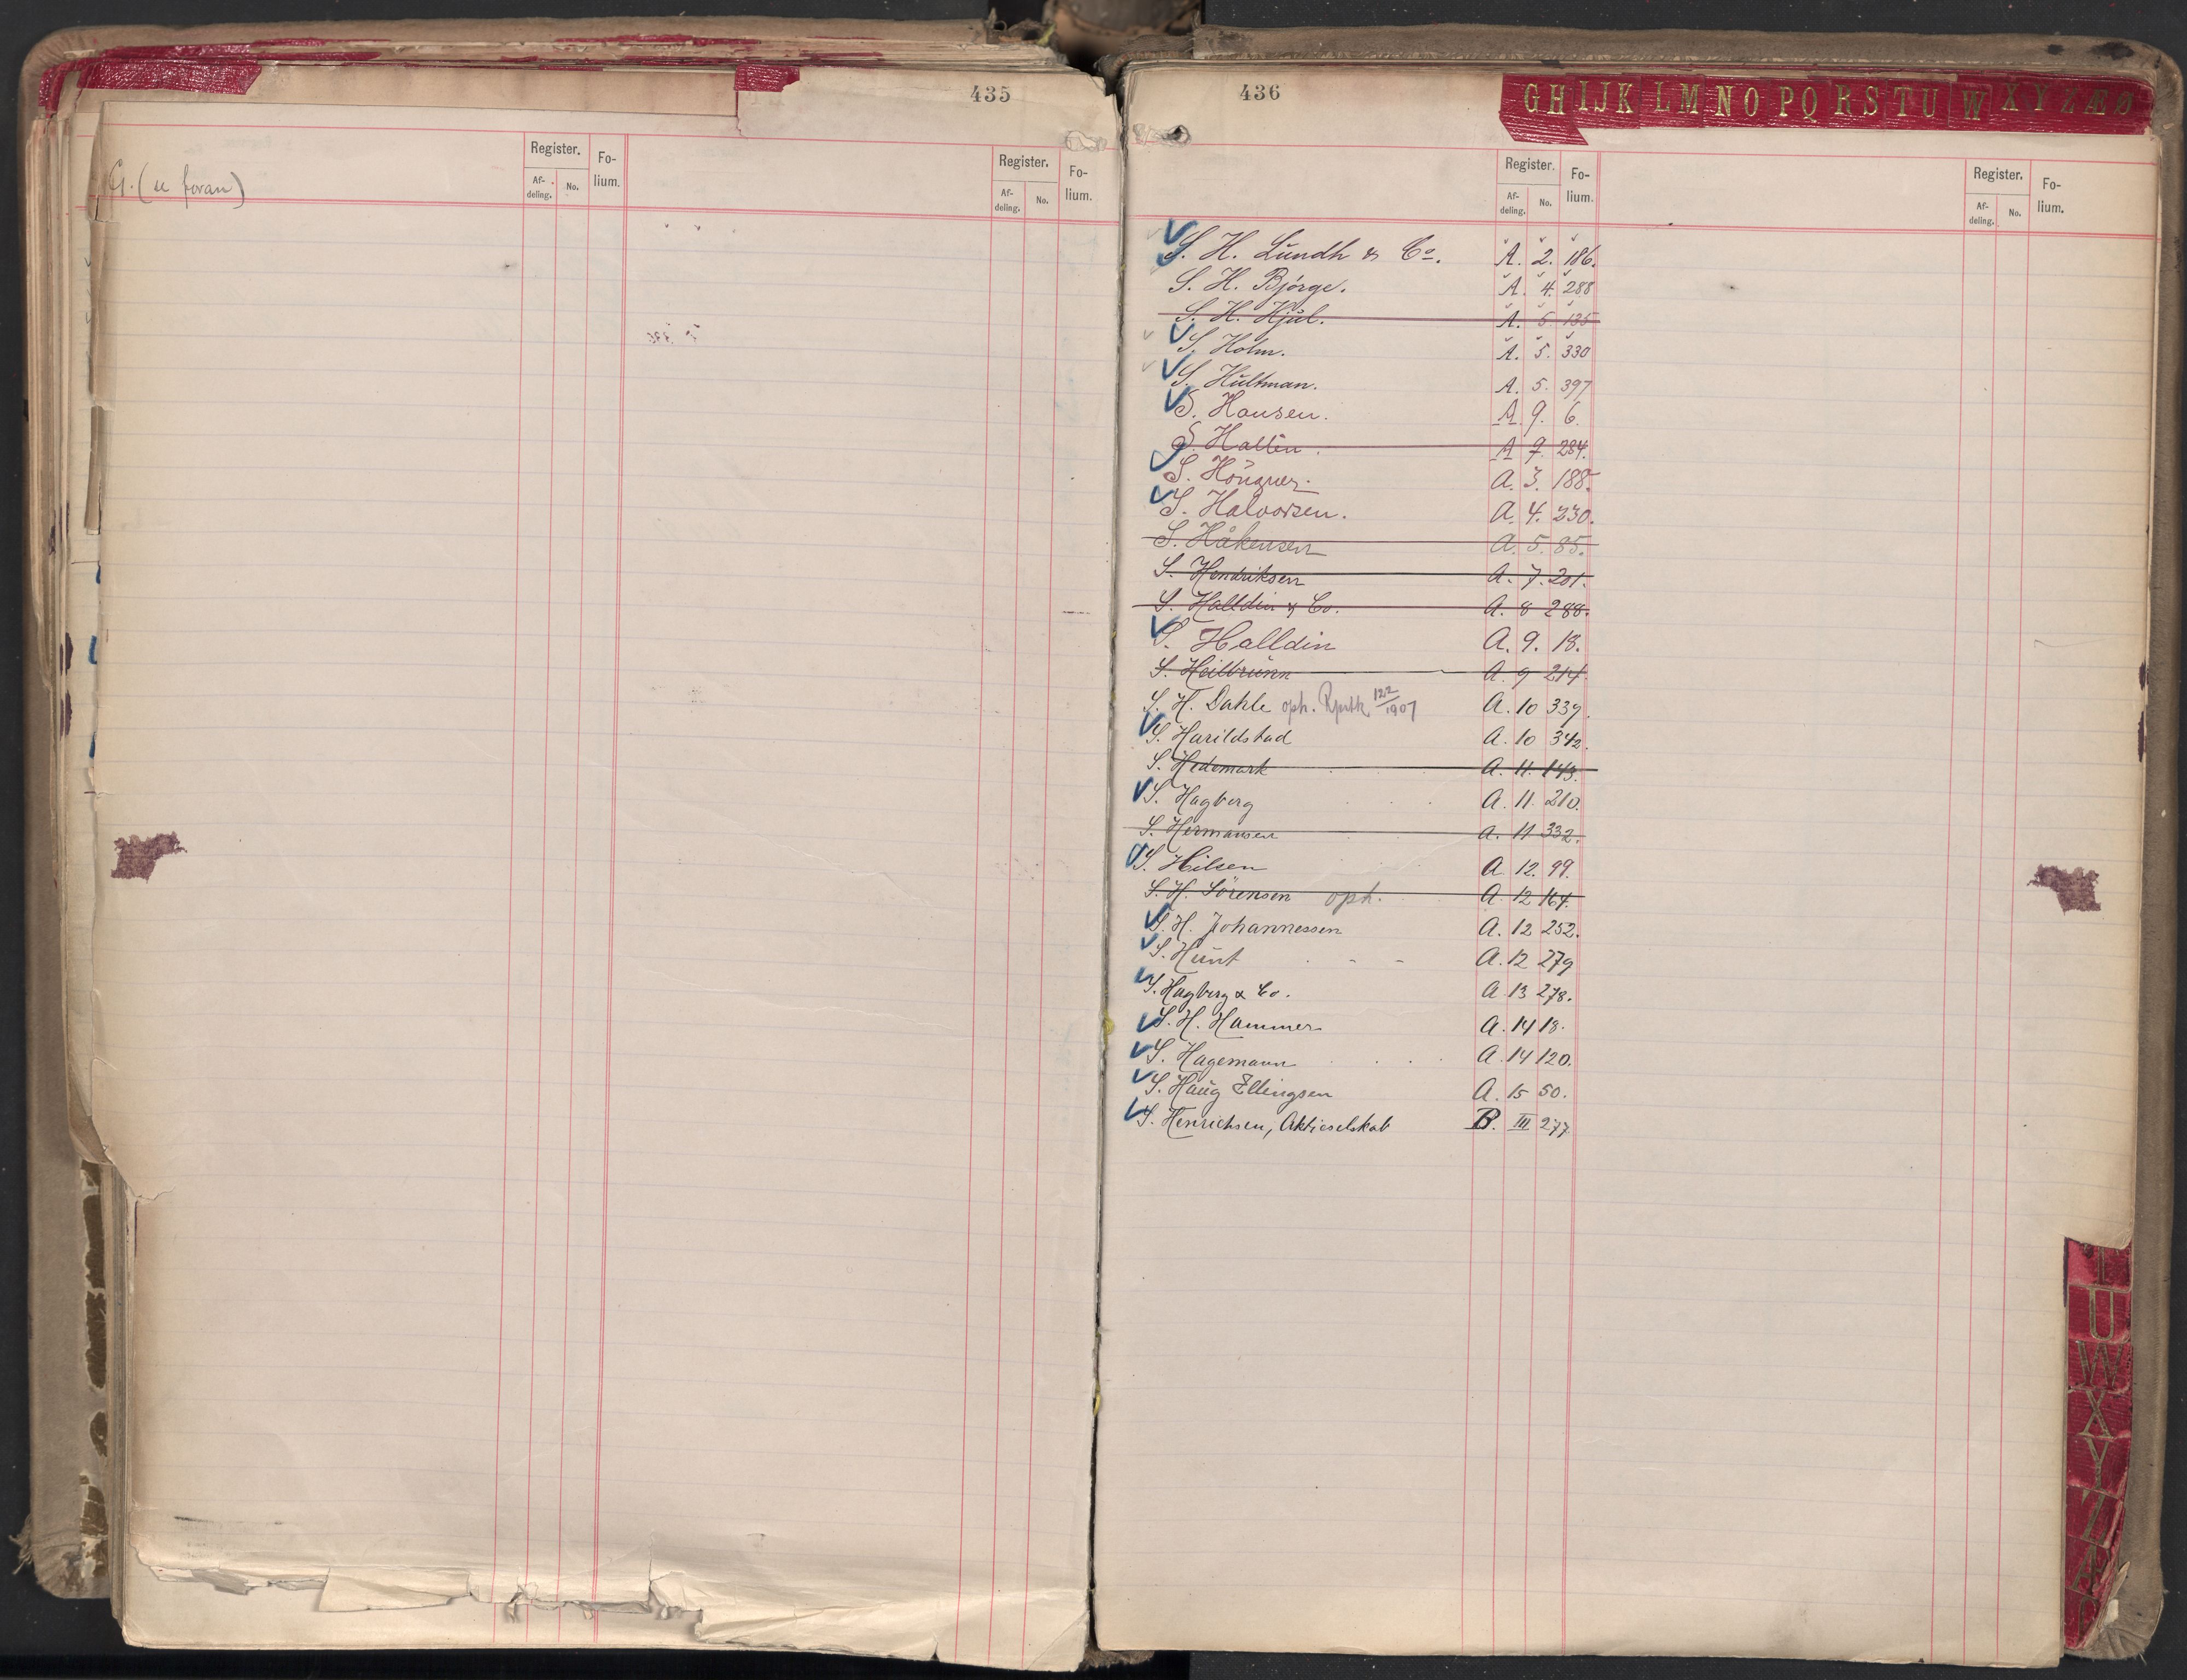 435
Register.
Fo-
lium.
Af-
deling.
No.
Register.
Fo-
lium.
Af-
deling.
No.
G. (se foran)
436
G H I J K L M N O P Q R S T U W X Y Z Æ Ø
Register.
Fo-
lium.
Af-
deling.
No.
Register.
Fo-
lium.
Af-
deling.
No.
S. H. Lundh & Co. A. 2. 186.
S. H. Bjørge. A. 4. 288
S. H. Hjul. A. 5. 135
S. Holm. A. 5. 330
S. Hultman. A. 5. 397
S. Hansen. A. 9. 6.
S. Hallén. A 9. 284.
S. A. 3. 188.
S. Halvorsen. A. 4. 230.
S. Håkensen A. 5. 85.
S. Hendriksen A. 7. 201.
S. Halldin & Co. A. 8 288.
S. Halldin A. 9. 18.
S. Heilbrunn A. 9 214.
S. H. Dahle oph. 1907 A. 10 339.
S. Harildstad A. 10 342.
S. Hedemark A. 11. 143.
S. Hagberg A. 11. 210.
S. Hermansen A. 11 332.
S. Hilsen A 12. 99.
S. H. Sörensen oph. A. 12 164.
S. H. Johannessen A. 12 252.
S. Hunt A. 12 279
S. Hagberg & Co. A 13 278.
S. H. Hammer A. 14 18.
S. Hagemann A. 14 120.
S. Haug Ellingsen A. 15 50.
S. Henrichsen, Aktieselskab B. III 277.
T
U
W
X
Y
Z
Æ
Ø